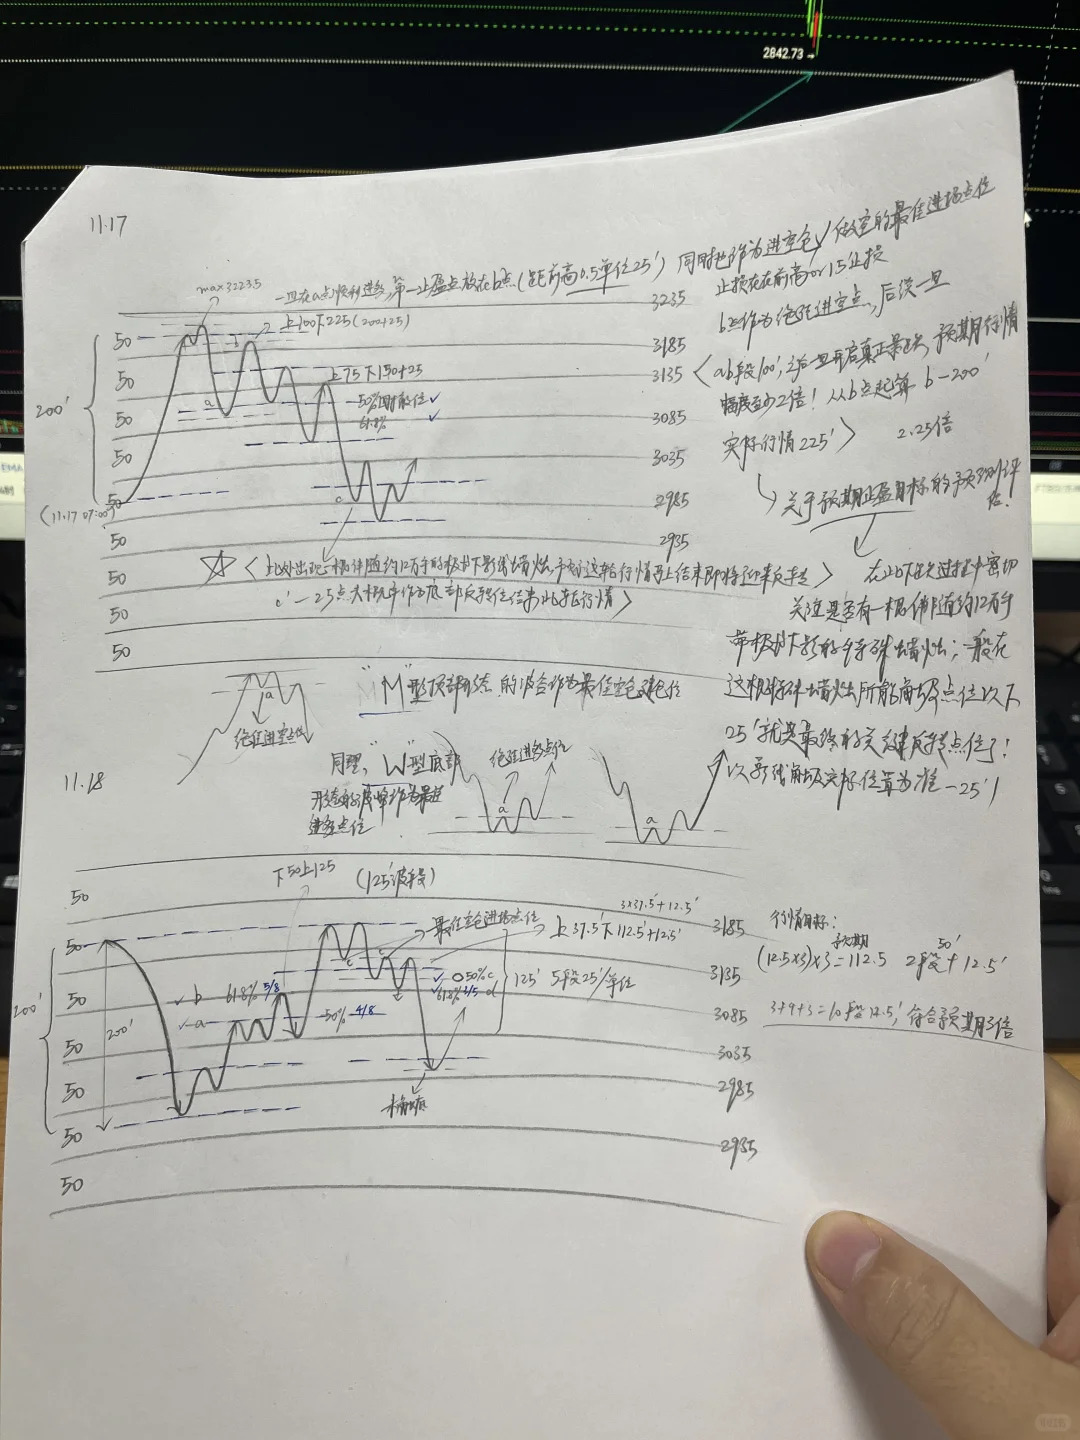 2842.73
EMA
11.17
max 3223.5
一旦在a点顺利进多,第一止盈点放在b点(距前高0.5单位25')
同时把b作为进空仓/做空的最佳进场点位
止损放在前高 or 15止损
b点作为绝佳进空点,后续一旦
<ab段100',之后一旦开启真正暴跌,预期行情
幅度至少2倍!从b点起算 b-200'
实际行情225'> 2.25倍
关于预期止盈目标的预测评估.
在此下跌过程中密切
关注是否有一根伴随约12万手
带极长下影的特殊蜡烛;一般在
这根特殊蜡烛所能触及点位以下
25'就是最终的关键反转点位了!
以影线触及实际位置为准-25')
3235
3185
3135
3085
3035
2985
2935
上100下225(200+25)
上75下150+25
50%回撤位✓
61.8% ✓
a
b
c
200'
50
50
50
50
50
50
50
50
50
(11.17 07:00)
☆<此处出现一根伴随约12万手的极长下影线蜡烛,预示这轮行情马上结束即将迎来反转>
c'-25点大概率作为底部反转位结束此轮行情>
a
绝佳进空点位
"M"型顶部形态的波谷作为最佳空仓建仓位
11.18
同理,"W"型底部
形态的波峰作为最佳
进多点位
绝佳进多点位
a
a
下50上125 (125'波段)
50
50
50
50
50
50
50
200'
200'
b 61.8% 5/8
a
50% 4/8
最佳空仓进场点位
上37.5'下112.5'+12.5'
3×37.5'+12.5'
c
0.50% c
61.8% 3/5 d
125' 5段25'/单位
未触底
3185
3135
3085
3035
2985
2935
行情目标:
预期
(12.5×3)×3=112.5 2段50'+12.5'
3+9+3=10段12.5',符合预期3倍